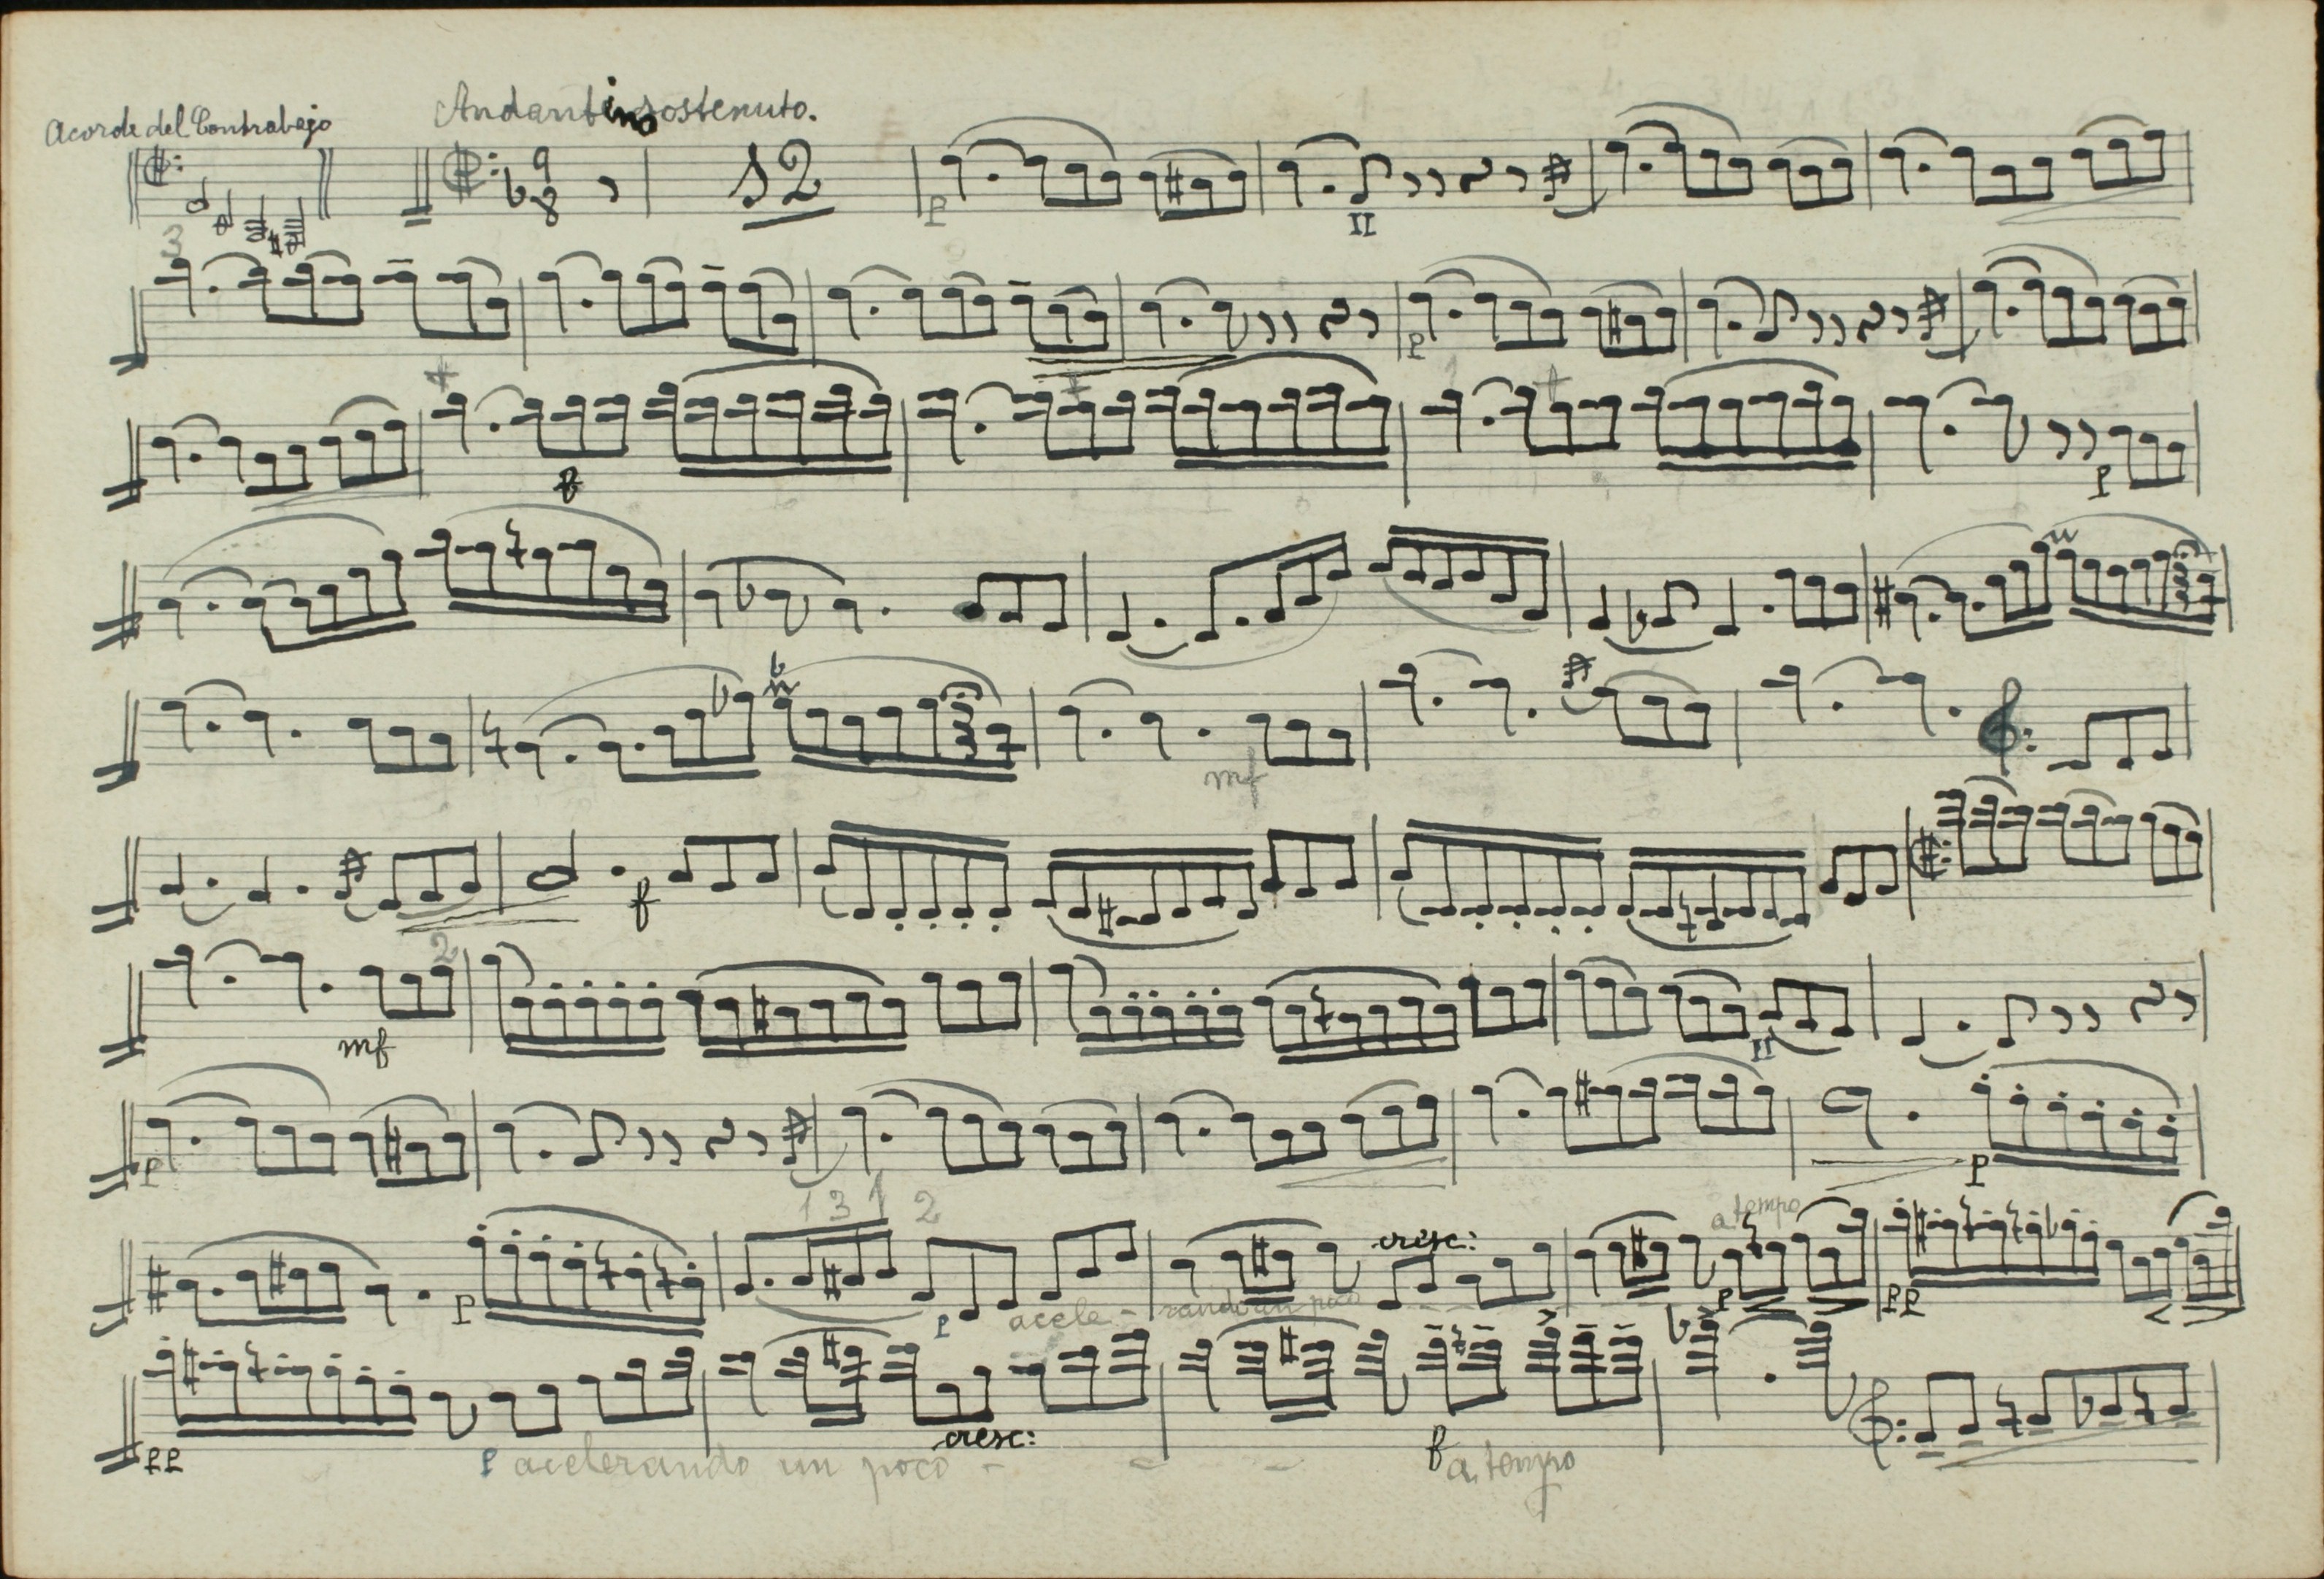 Acorde del Contrabajo
Andantino sostenuto.
9
8
12
p
II
3
p
f
p
mf
f
2
mf
II
p
p
1 3 1 2
cresc:
a tempo
p
p
accele - rando un poco
p
pp
cresc:
pp
p acelerando un poco - - -
f a tempo